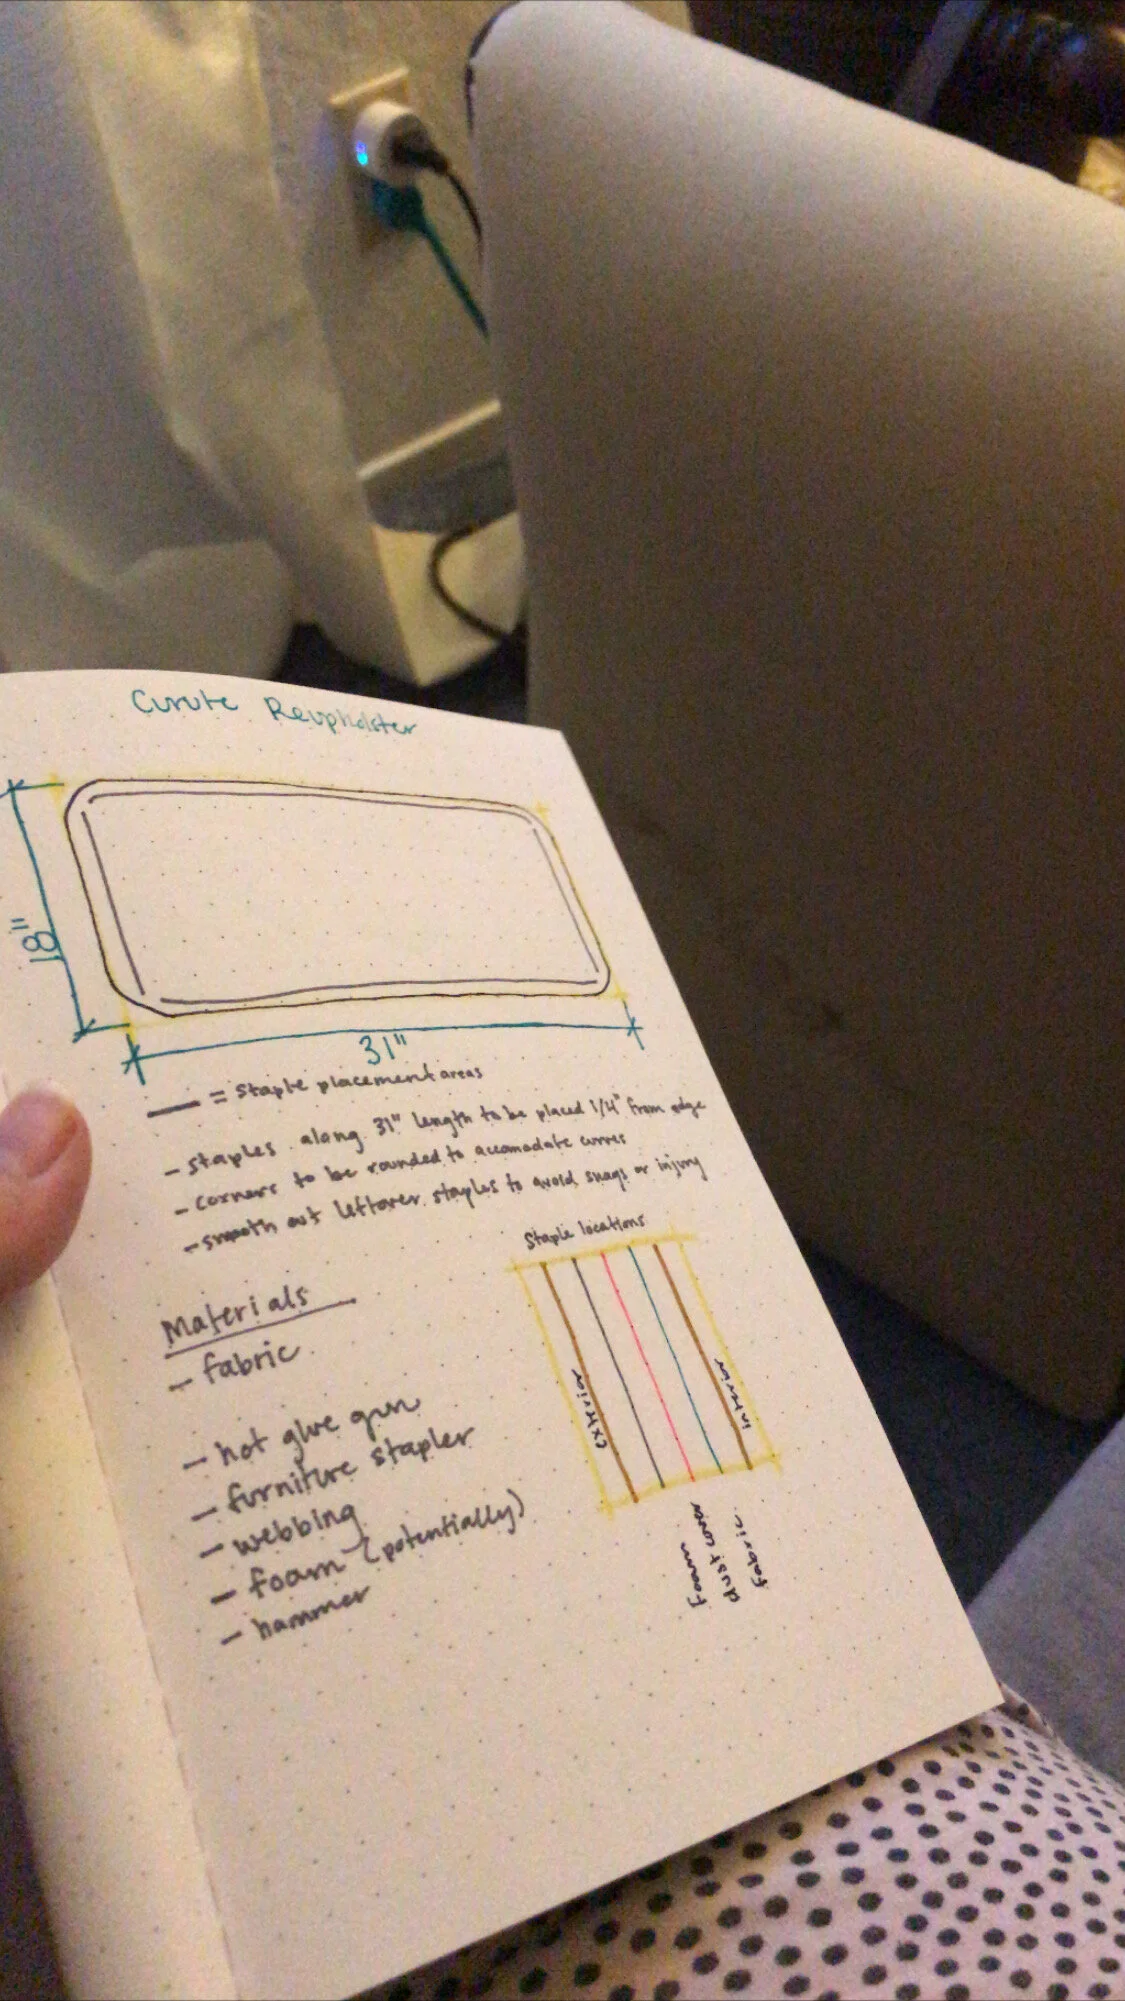 Curute Reupholster
18"
31"
= Staple placement areas
- Staples along 31" length to be placed 1/4" from edge
- corners to be rounded to accomodate curves
- smooth out leftover staples to avoid snags or injury
Staple locations
exterior
interior
foam
dust cover
fabric
Materials
- fabric
- hot glue gun
- furniture stapler
- webbing
- foam (potentially)
- hammer